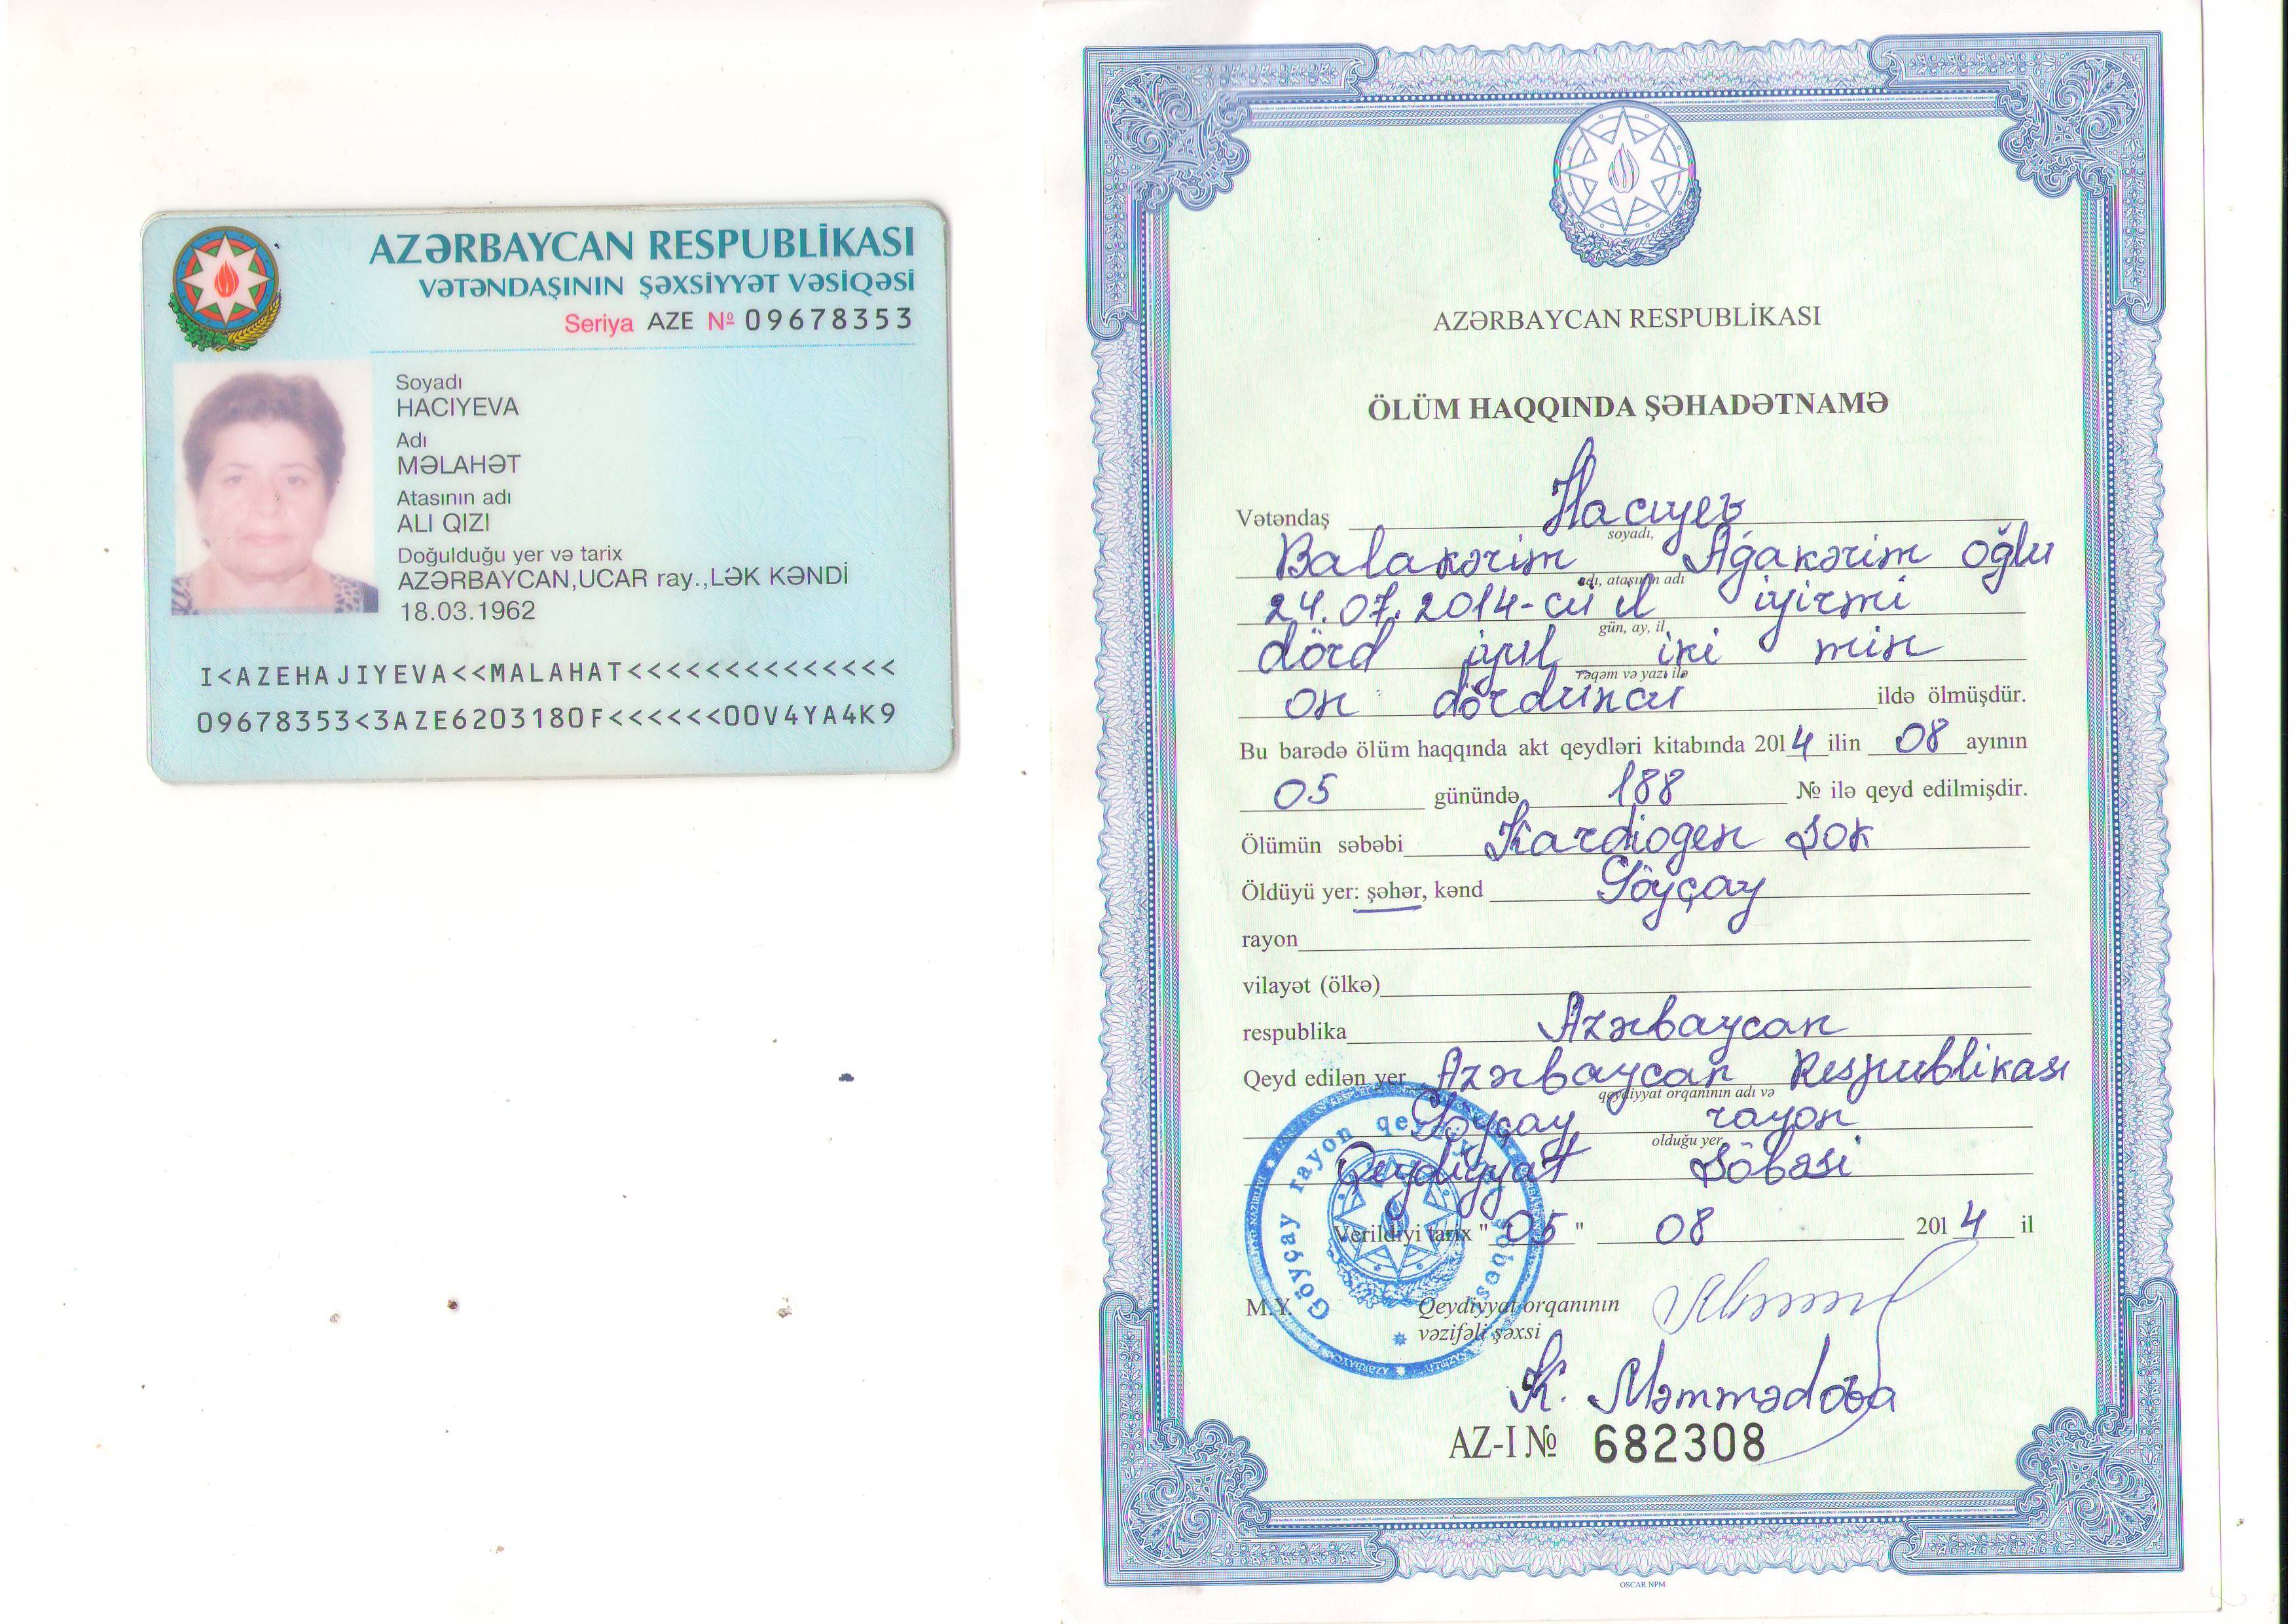 AZƏRBAYCAN RESPUBLİKASI
VƏTƏNDAŞININ ŞƏXSİYYƏT VƏSİQƏSİ
Seriya AZE № 09678353
Soyadı
HACIYEVA
Adı
MƏLAHƏT
Atasının adı
ALI QIZI
Doğulduğu yer və tarix
AZƏRBAYCAN,UCAR ray.,LƏK KƏNDİ
18.03.1962
I<AZEHAJIYEVA<<MALAHAT<<<<<<<<<<<<<<
09678353<3AZE6203180F<<<<<<00V4YA4K9
AZƏRBAYCAN RESPUBLİKASI
ÖLÜM HAQQINDA ŞƏHADƏTNAMƏ
Vətəndaş Hacıyev
soyadı,
Balakərim Ağakərim oğlu
adı, atasının adı
24.07.2014-cü il iyirmi
gün, ay, il,
dörd iyul iki min
rəqəm və yazı ilə
on dördüncü ildə ölmüşdür.
Bu barədə ölüm haqqında akt qeydləri kitabında 2014 ilin 08 ayının
05 günündə 188 № ilə qeyd edilmişdir.
Ölümün səbəbi Kardiogen şok
Öldüyü yer: şəhər, kənd Göyçay
rayon
vilayət (ölkə)
respublika Azərbaycan
Qeyd edilən yer Azərbaycan Respublikası
qeydiyyat orqanının adı və
Göyçay rayon
olduğu yer
Qeydiyyat şöbəsi
Verildiyi tarix "05" 08 2014 il
M.Y. Qeydiyyat orqanının
vəzifəli şəxsi
K. Məmmədova
AZ-I № 682308
Göyçay rayon qeydiyyat şöbəsi
OSCAR NPM